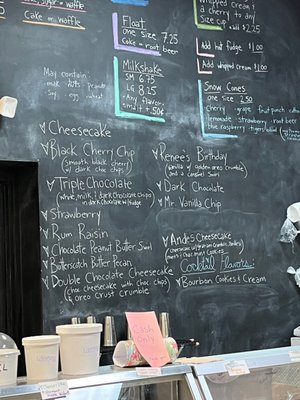 Sugar or waffle
Cake or waffle
May contain
milk, nuts, peanuts
soy, egg, wheat
Float
one size 7.25
Cake or root beer
Milkshake
SM 6.75
LG 8.25
Any flavor
malt + 50¢
Whipped cream &
a cherry to any
Add hot fudge
Add whipped cream $1.00
Snow Cones
one size 2.50
Cherry grape fruit punch
lemonade strawberry root beer
blue raspberry tigers blood
Cheesecake
Black Cherry Chip
(smooth black cherry
w/ dark choc chips)
Triple Chocolate
(white, milk & dark chocolate chips
in dark chocolate w/ fudge)
Strawberry
Rum Raisin
Chocolate Peanut Butter Swirl
Butterscotch Butter Pecan
Double Chocolate Cheesecake
(choc cheesecake with choc chips)
& oreo Crust Crumble
Renee's Birthday
(vanilla w/ golden oreo crumble
and a caramel Swirl)
Dark Chocolate
Mr. Vanilla Chip
Andes Cheesecake
Cocktail Flavors
Bourbon Cookies & Cream
Cash
Only